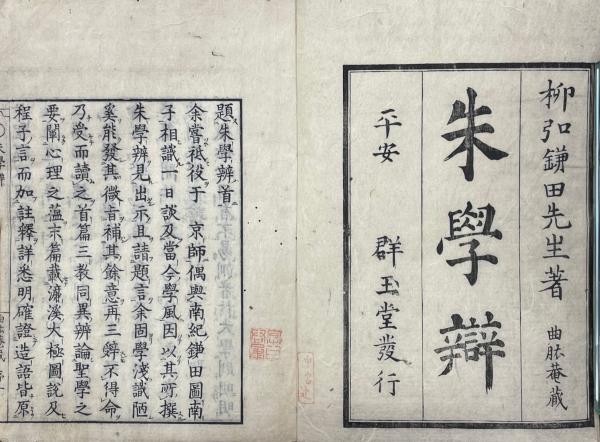 柳弘鎌田先生著
曲肱菴藏
朱學辯
平安
群玉堂發行
題朱學辨首
余嘗祗役于 京師偶與南紀鎌田圖南
子相識一日談及當今學風因以其所撰
朱學辨見出示且請題言余固學淺識陋
奚能發其微旨補其餘意再三辭不得命
乃受而讀之首篇三教同異辨論聖學之
要闡心理之蘊末篇載濂溪大極圖說及
程子言而加註釋詳悉明確證造語皆原